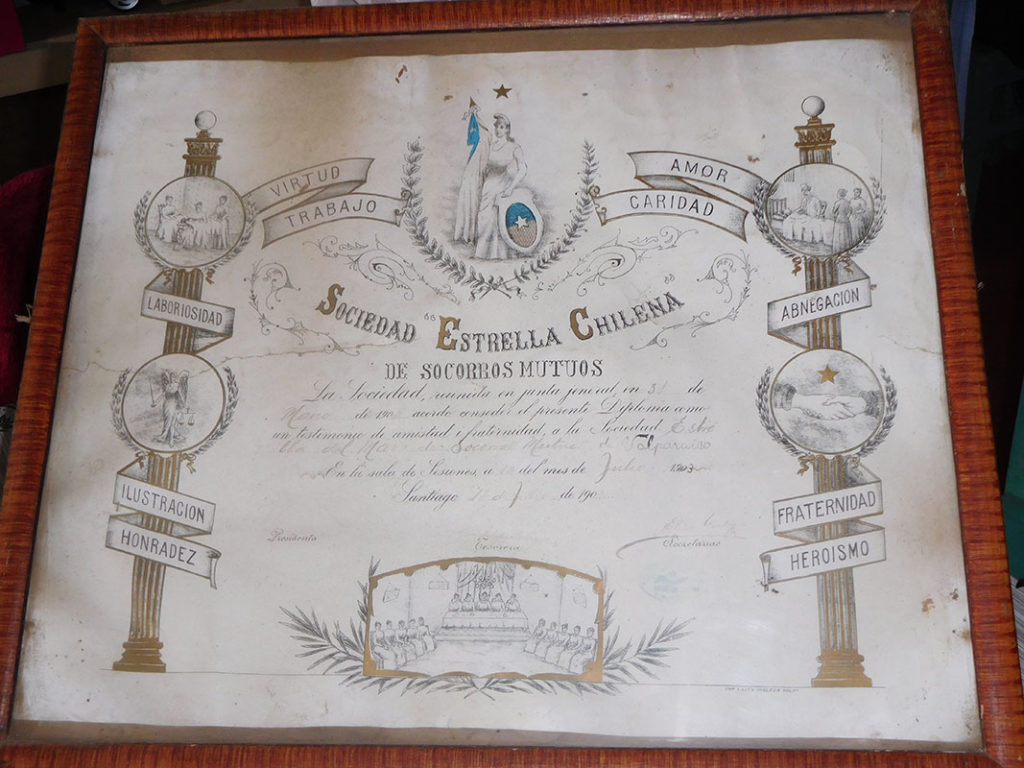 VIRTUD
TRABAJO
AMOR
CARIDAD
LABORIOSIDAD
ABNEGACION
SOCIEDAD "ESTRELLA CHILENA"
DE SOCORROS MUTUOS
La Sociedad, reunida en junta jeneral, en 31 de
de 190 acordo conseder el presente Diploma como
un testimonio de amistad i fraternidad, a la Sociedad
del Mar de Socorros Mutuos de Valparaiso
En la sala de Sesiones, a del mes de Julio 1903
Santiago de 190
ILUSTRACION
HONRADEZ
FRATERNIDAD
HEROISMO
Presidenta
Tesorera
Secretarias